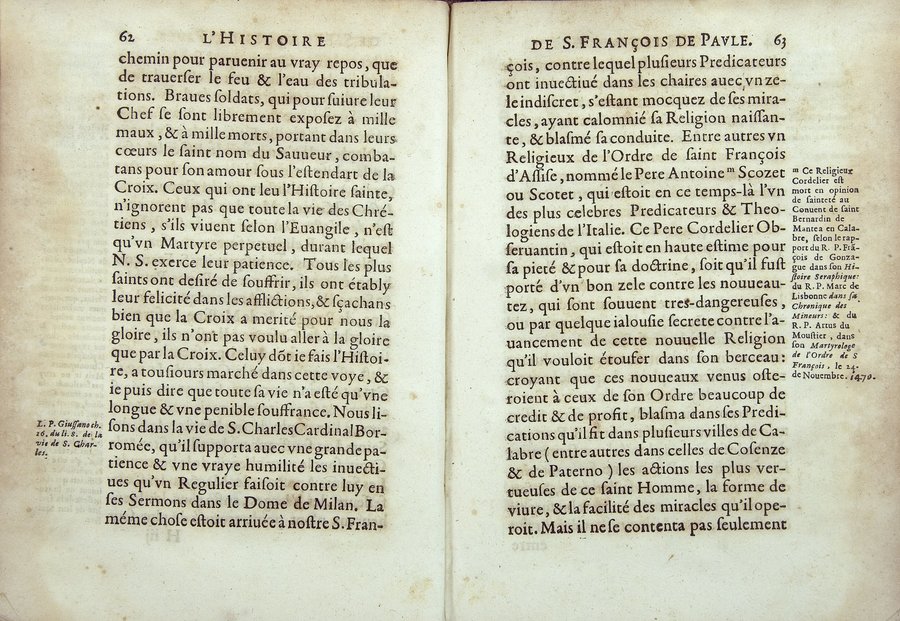 62 L'HISTOIRE
chemin pour paruenir au vray repos, que
de trauerſer le feu & l'eau des tribula-
tions. Braues ſoldats, qui pour ſuiure leur
Chef ſe ſont librement expoſez à mille
maux, & à mille morts, portant dans leurs
cœurs le ſaint nom du Sauueur, comba-
tans pour ſon amour ſous l'eſtendart de la
Croix. Ceux qui ont leu l'Hiſtoire ſainte,
n'ignorent pas que toute la vie des Chré-
tiens, s'ils viuent ſelon l'Euangile, n'eſt
qu'vn Martyre perpetuel, durant lequel
N. S. exerce leur patience. Tous les plus
ſaints ont deſiré de ſouffrir, ils ont étably
leur felicité dans les afflictions, & ſçachans
bien que la Croix a merité pour nous la
gloire, ils n'ont pas voulu aller à la gloire
que par la Croix. Celuy dõt ie fais l'Hiſtoi-
re, a touſiours marché dans cette voye, &
ie puis dire que toute ſa vie n'a eſté qu'vne
longue & vne penible ſouffrance. Nous li-
ſons dans la vie de S. Charles Cardinal Bor-
romée, qu'il ſupporta auec vne grande pa-
tience & vne vraye humilité les inuecti-
ues qu'vn Regulier faiſoit contre luy en
ſes Sermons dans le Dome de Milan. La
méme choſe eſtoit arriuée à noſtre S. Fran-
L. P. Giuſſano ch.
26. du li. 8. de la
vie de S. Char-
les.
DE S. FRANÇOIS DE PAVLE. 63
çois, contre lequel pluſieurs Predicateurs
ont inuectiué dans les chaires auec vn ze-
le indiſcret, s'eſtant mocquez de ſes mira-
cles, ayant calomnié ſa Religion naiſſan-
te, & blaſmé ſa conduite. Entre autres vn
Religieux de l'Ordre de ſaint François
d'Aſſiſe, nommé le Pere Antoine m Scozet
ou Scotet, qui eſtoit en ce temps-là l'vn
des plus celebres Predicateurs & Theo-
logiens de l'Italie. Ce Pere Cordelier Ob-
ſeruantin, qui eſtoit en haute eſtime pour
ſa pieté & pour ſa doctrine, ſoit qu'il fuſt
porté d'vn bon zele contre les nouueau-
tez, qui ſont ſouuent tres-dangereuſes,
ou par quelque ialouſie ſecrete contre l'a-
uancement de cette nouuelle Religion
qu'il vouloit étoufer dans ſon berceau:
croyant que ces nouueaux venus oſte-
roient à ceux de ſon Ordre beaucoup de
credit & de profit, blaſma dans ſes Predi-
cations qu'il fit dans pluſieurs villes de Ca-
labre (entre autres dans celles de Coſenze
& de Paterno) les actions les plus ver-
tueuſes de ce ſaint Homme, la forme de
viure, & la facilité des miracles qu'il ope-
roit. Mais il ne ſe contenta pas ſeulement
m Ce Religieux
Cordelier eſt
mort en opinion
de ſainteté au
Conuent de ſaint
Bernardin de
Mantea en Cala-
bre, ſelon le rap-
port du R. P. Frã-
çois de Gonza-
gue dans ſon Hi-
ſtoire Seraphique:
du R. P. Marc de
Lisbonne dans ſa
Chronique des
Mineurs: & du
R. P. Artus du
Mouſtier, dans
ſon Martyrologe
de l'Ordre de S
François, le 24.
de Nouembre. 1470.